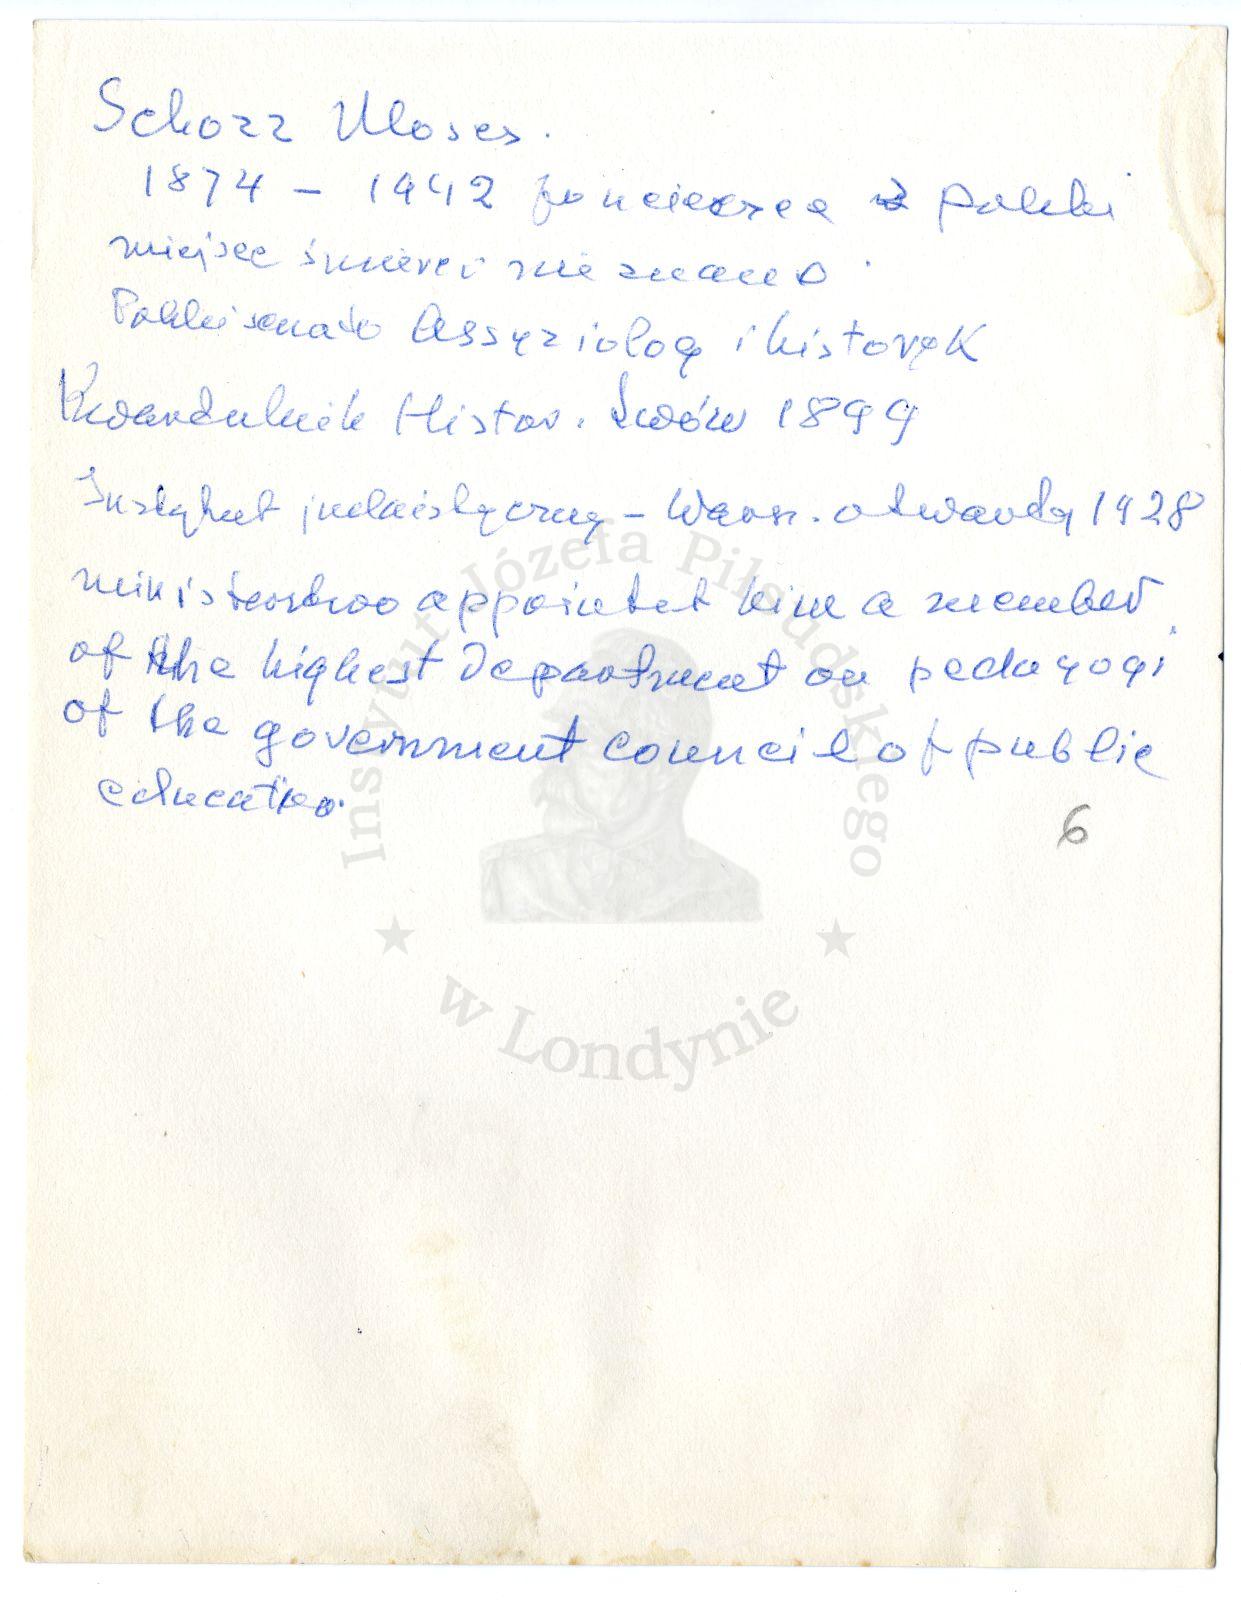 Schorr Moses.
1874 – 1942 po ucieczce z Polski
miejsce śmierci nie znane.
Polski senator Assyriolog i historyk
Kwartalnik Histor. Lwów 1899
Instytut judaistyczny – Warsz. otwarty 1928
ministerstwo appointet him a member
of the highest Department on pedagogi
of the government council of public
education.
6
Instytut Józefa Piłsudskiego
w Londynie